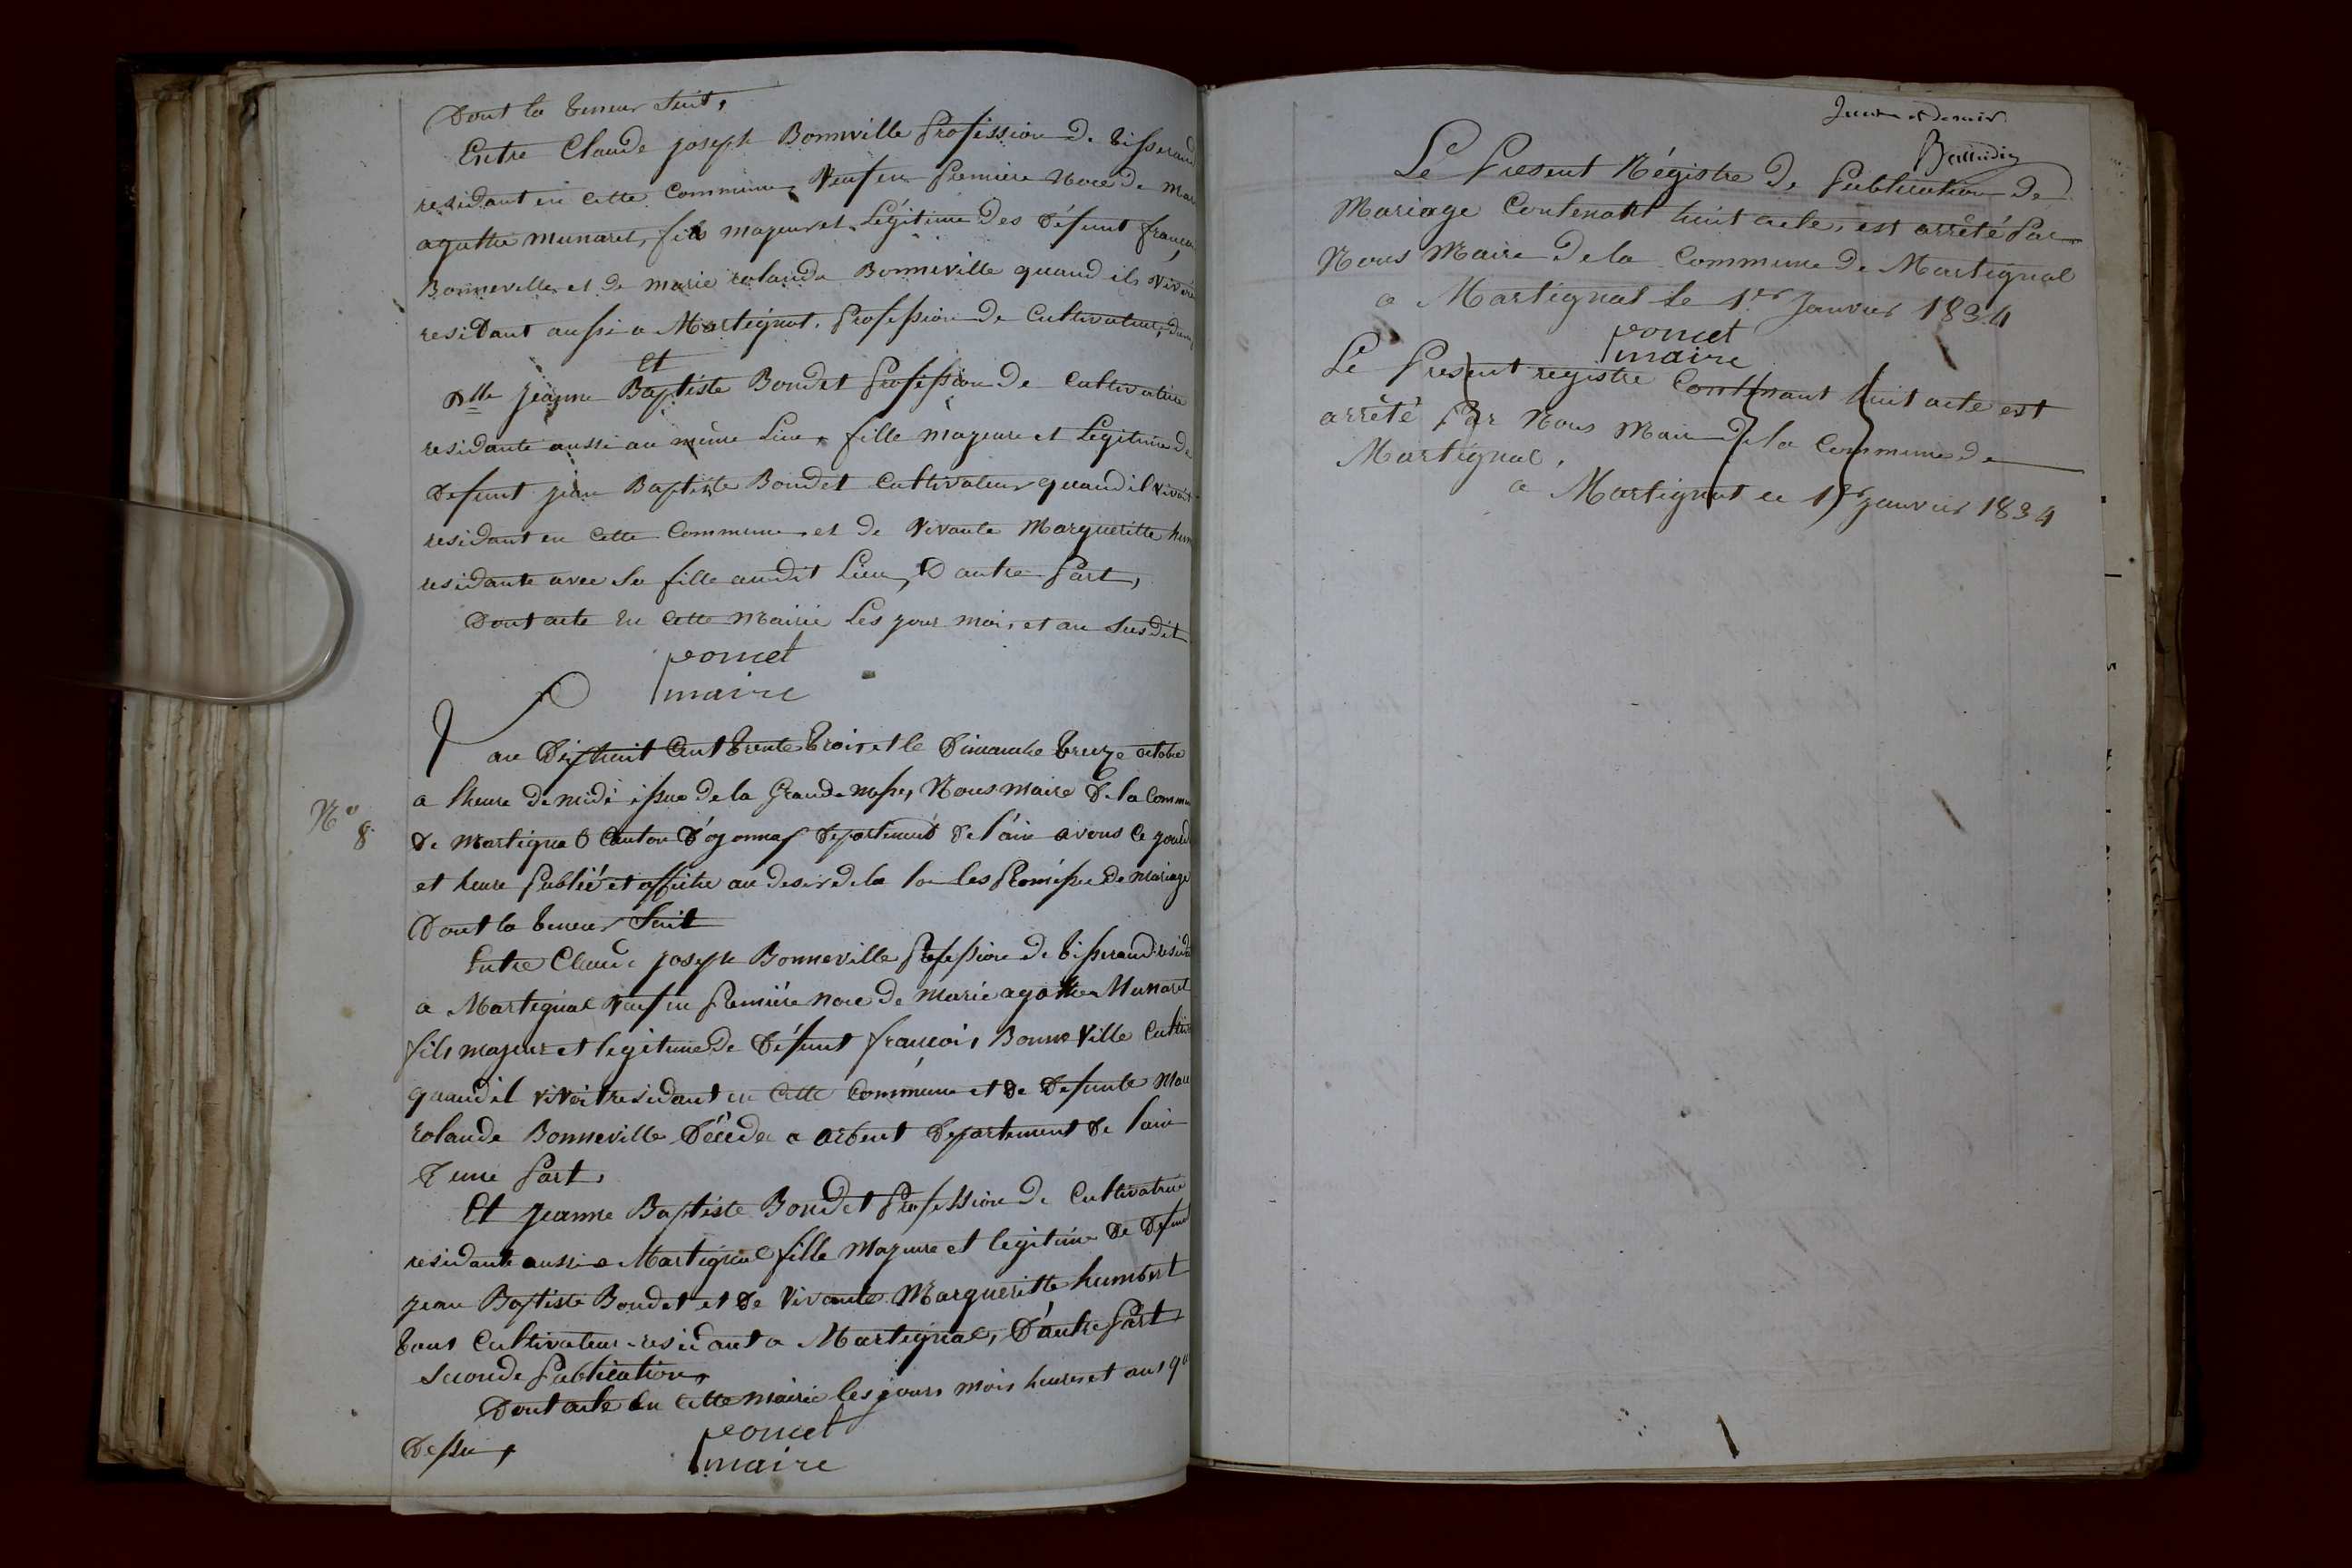 Dont la teneur suit,
Entre Claude joseph Bonneville Profession De tisserand
residant en cette Commune, Veuf en premiere Noce De mar
agathe munaret, fils majeur et Légitime Des Défunt françoi
Bonneville et De marie rolande Bonneville quand ils vivoi
residant aussi a Martignat, Profession De Cultivateur, dun
Et
Dlle jeanne Baptiste Bondet Profession De Cultivatrice
residante aussi au même Lieu, fille majeure et Legitime De
Defunt jean Baptiste Bondet Cultivateur quand il vivoit
residant en cette Commune, et De Vivante Margueritte hum
residante avec sa fille audit Lieu, D'autre Part,
Dont acte En Cette Mairie Les jour mois et an Susdit
poncet
maire
an Dix huit Cent trente trois et le Dimanche treize octobre
N° 8
a lheure De midi issue De la Grande messe, Nous maire De la Commu
De Martignat Canton D'oyonnax Departement De l'ain avons Ce jourd
et heure Publié et affiché au desir de la loi les Promesse De Mariage
Dont la teneur Suit
Entre Claude joseph Bonneville Profession De tisserand resid
a Martignat Veuf en Premiére noce De Marie agathe Munaret
fils majeur et legitime De Défunt françois Bonneville Cultiv
quand il vivoit residant en Cette Commune et De Defunte Mari
rolande Bonneville Décédée a arbent Departement De lain
D'une Part,
Et jeanne Baptiste Bondet Profession De Cultivatrice
residante aussi a Martignat fille Majeure et legitime De Defunt
jean Baptiste Bondet et De Vivante Margueritte humbert
tous Cultivateur residant a Martignat, D'autre Part
Seconde Publication,
Dont acte En Cette mairie les jours mois heures et ans q
Dessu,
poncet
maire
et Dernier
Le Present Régistre De Publication De
Mariage Contenant huit acte, est arrêté Par
Nous Maire De la Commune De Martignat
a Martignat Le 1er Janvier 1834
poncet
maire
Le Present registre Contenant huit acte est
arrêté Par Nous Maire De la Commune De
Martignat,
a Martignat ce 1er janvier 1834